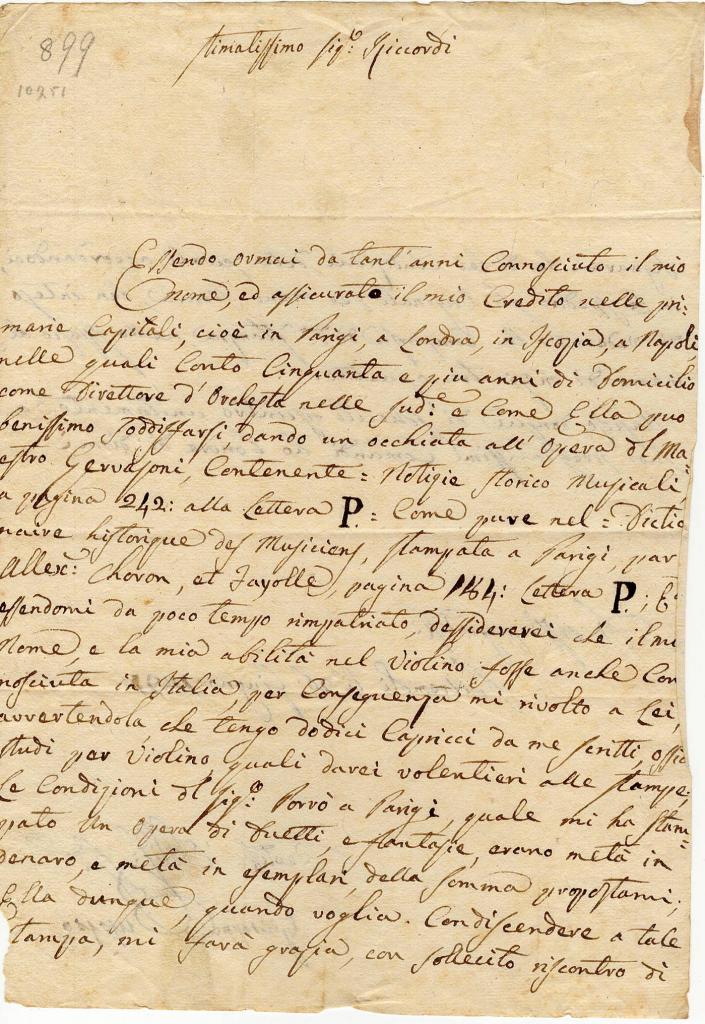 899
10251
Stimatissimo Sig.º Riccordi
Essendo ormai da tant'anni Connosciuto il mio
nome, ed assicurato il mio Credito nelle pri:
marie Capitali, cioè in Parigi, a Londra, in Iscozia, a Napoli,
nelle quali Conto Cinquanta e piu anni di Domicilio
come Direttore d'Orchesta nelle sud.e e Come Ella puo
benissimo Soddisfarsi, dando un occhiata all'Opera dl Ma=
estro Gervasoni, Contenente = Notizie storico Musicali
a pagina 242: alla Lettera P.= Come pure nel = Dictio
naire historique des Musiciens, stampata a Parigi, par
Allex.: Choron, et Fayolle, pagina 164: Lettera P.;
essendomi da poco tempo rimpatriato, dessidererei che il
Nome, e la mia abilità nel Violino fosse anche Con
nosciuta in Italia, per Conseguenza mi rivolto a Lei,
avvertendola, che tengo dodici Capricci da me scritti, ossia
Studi per Violino, quali darei volentieri alle stampe;
Le Condizioni dl Sig.º Porrò a Parigi, quale mi ha stam=
pato un Opera di Duetti, e fantasie, erano metà in
denaro, e metà in esemplari, della somma propostami;
Ella dunque, quando voglia. Condiscendere a tale
stampa, mi farà grazia, con sollecito riscontro di